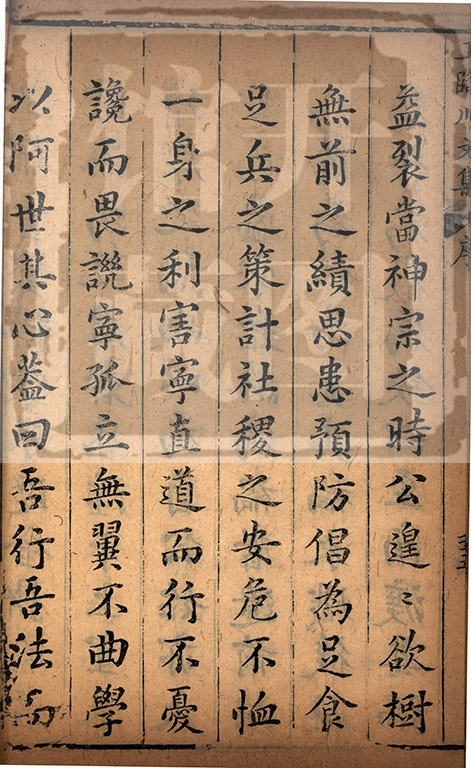 臨川文集 序
益裂當神宗之時公遑〻欲樹
無前之績思患預防倡為足食
足兵之策計社稷之安危不恤
一身之利害寧直道而行不憂
讒而畏譏寧孤立無翼不曲學
以阿世其心葢曰吾行吾法